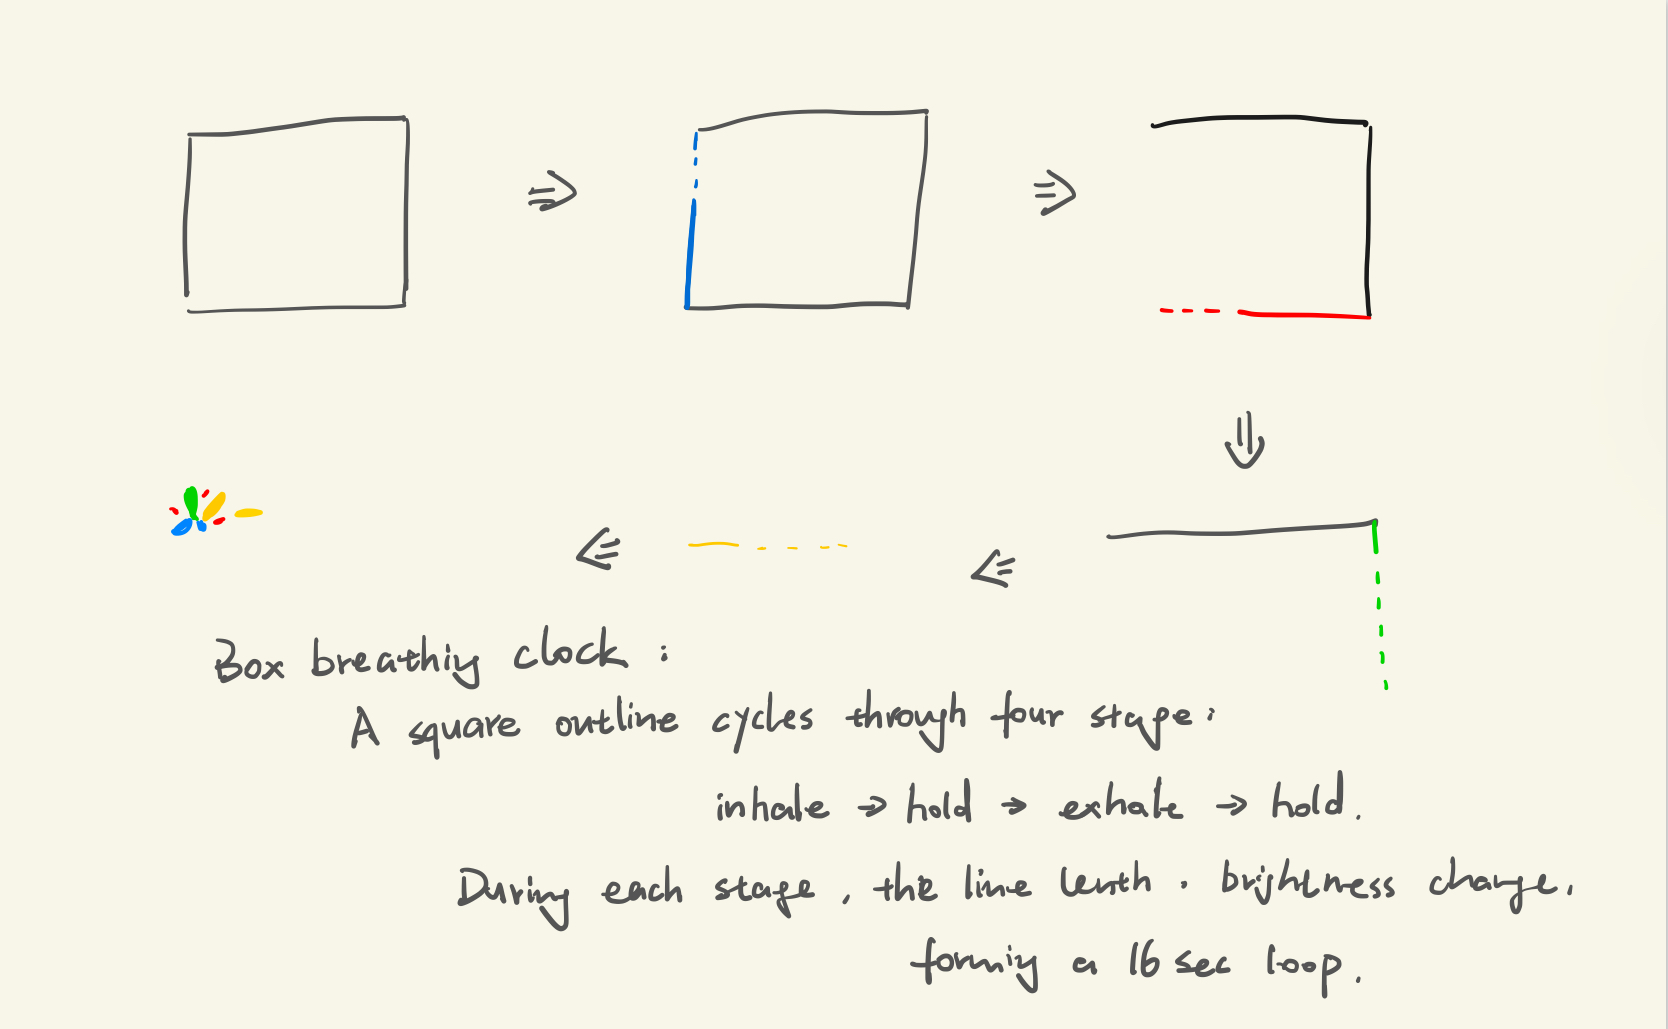 Box breathing clock :
A square outline cycles through four stage:
inhale → hold → exhale → hold.
During each stage, the line lenth . brightness change,
forming a 16 sec loop.